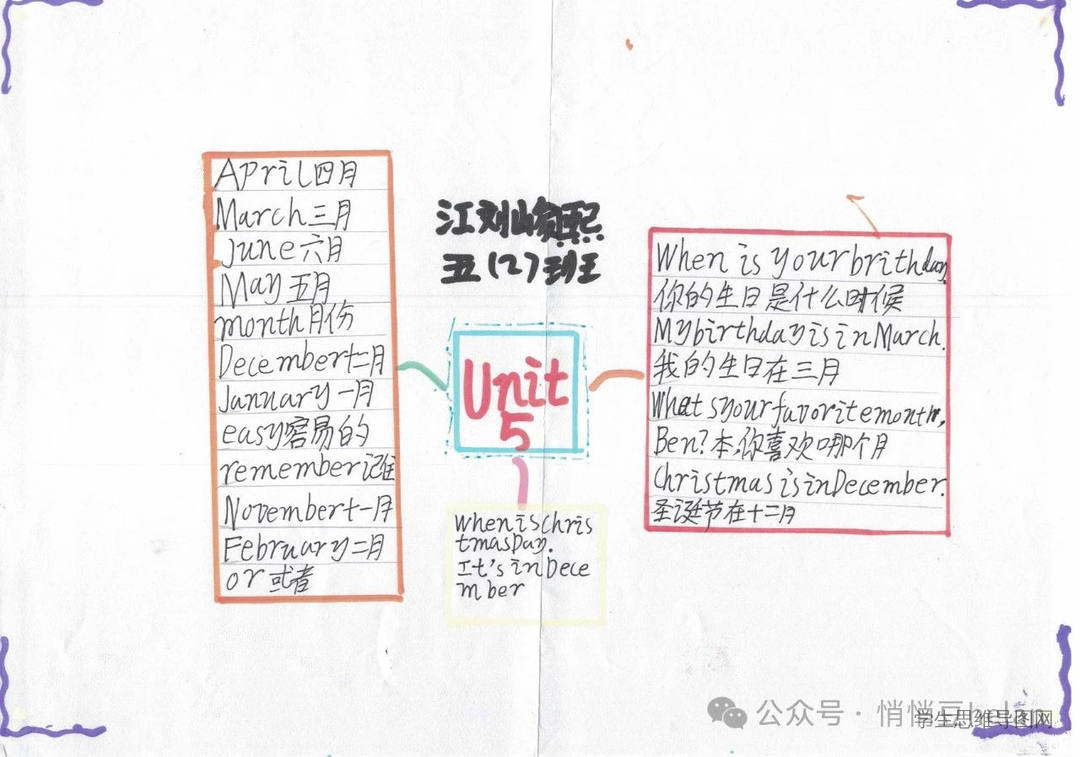 April四月
March三月
June六月
May五月
month月份
December十二月
January一月
easy容易的
remember记住
November十一月
February二月
or或者
江刘峻熙
五(2)班
Unit
5
When is Chris
tmas Day.
It's in Dece
mber
When is your brithday.
你的生日是什么时候
My birthday is in March.
我的生日在三月
What s your favorite month,
Ben?本,你喜欢哪个月
Christmas is in December.
圣诞节在十二月
公众号·悄悄豆
学生思维导图网